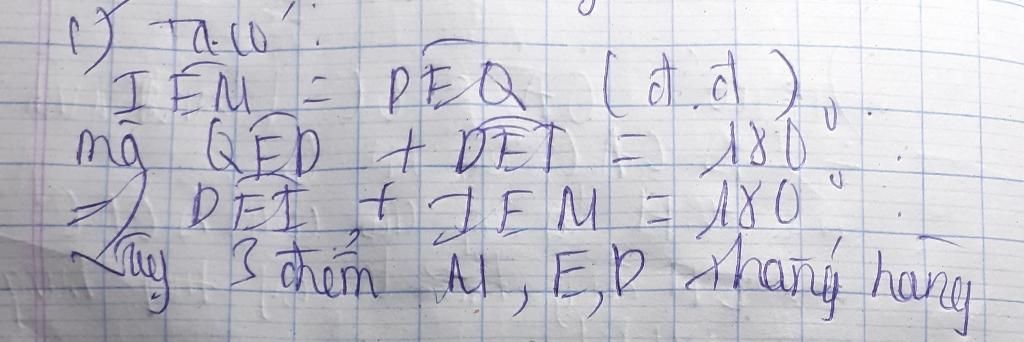 c) Ta có:
IEM = DEQ (đ.đ)
mà QED + DEI = 180⁰.
=> DEI + IEM = 180⁰.
Vậy 3 điểm M, E, D thẳng hàng